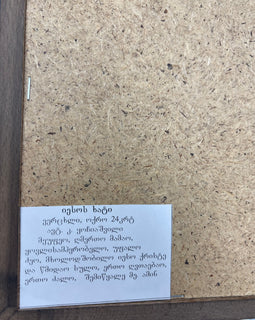 იესოს ხატი
ვერცხლი, ოქრო 24კრტ
ავტ. კ. ყონიაშვილი
მეუფეო, ღმერთო მამაო,
ყოვლისამპყრობელო, უფალო
ძეო, მხოლოდშობილო იესო ქრისტე
და წმიდაო სულო, ერთო ღვთაებაო,
ერთო ძალო, შემიწყალე მე. ამინ